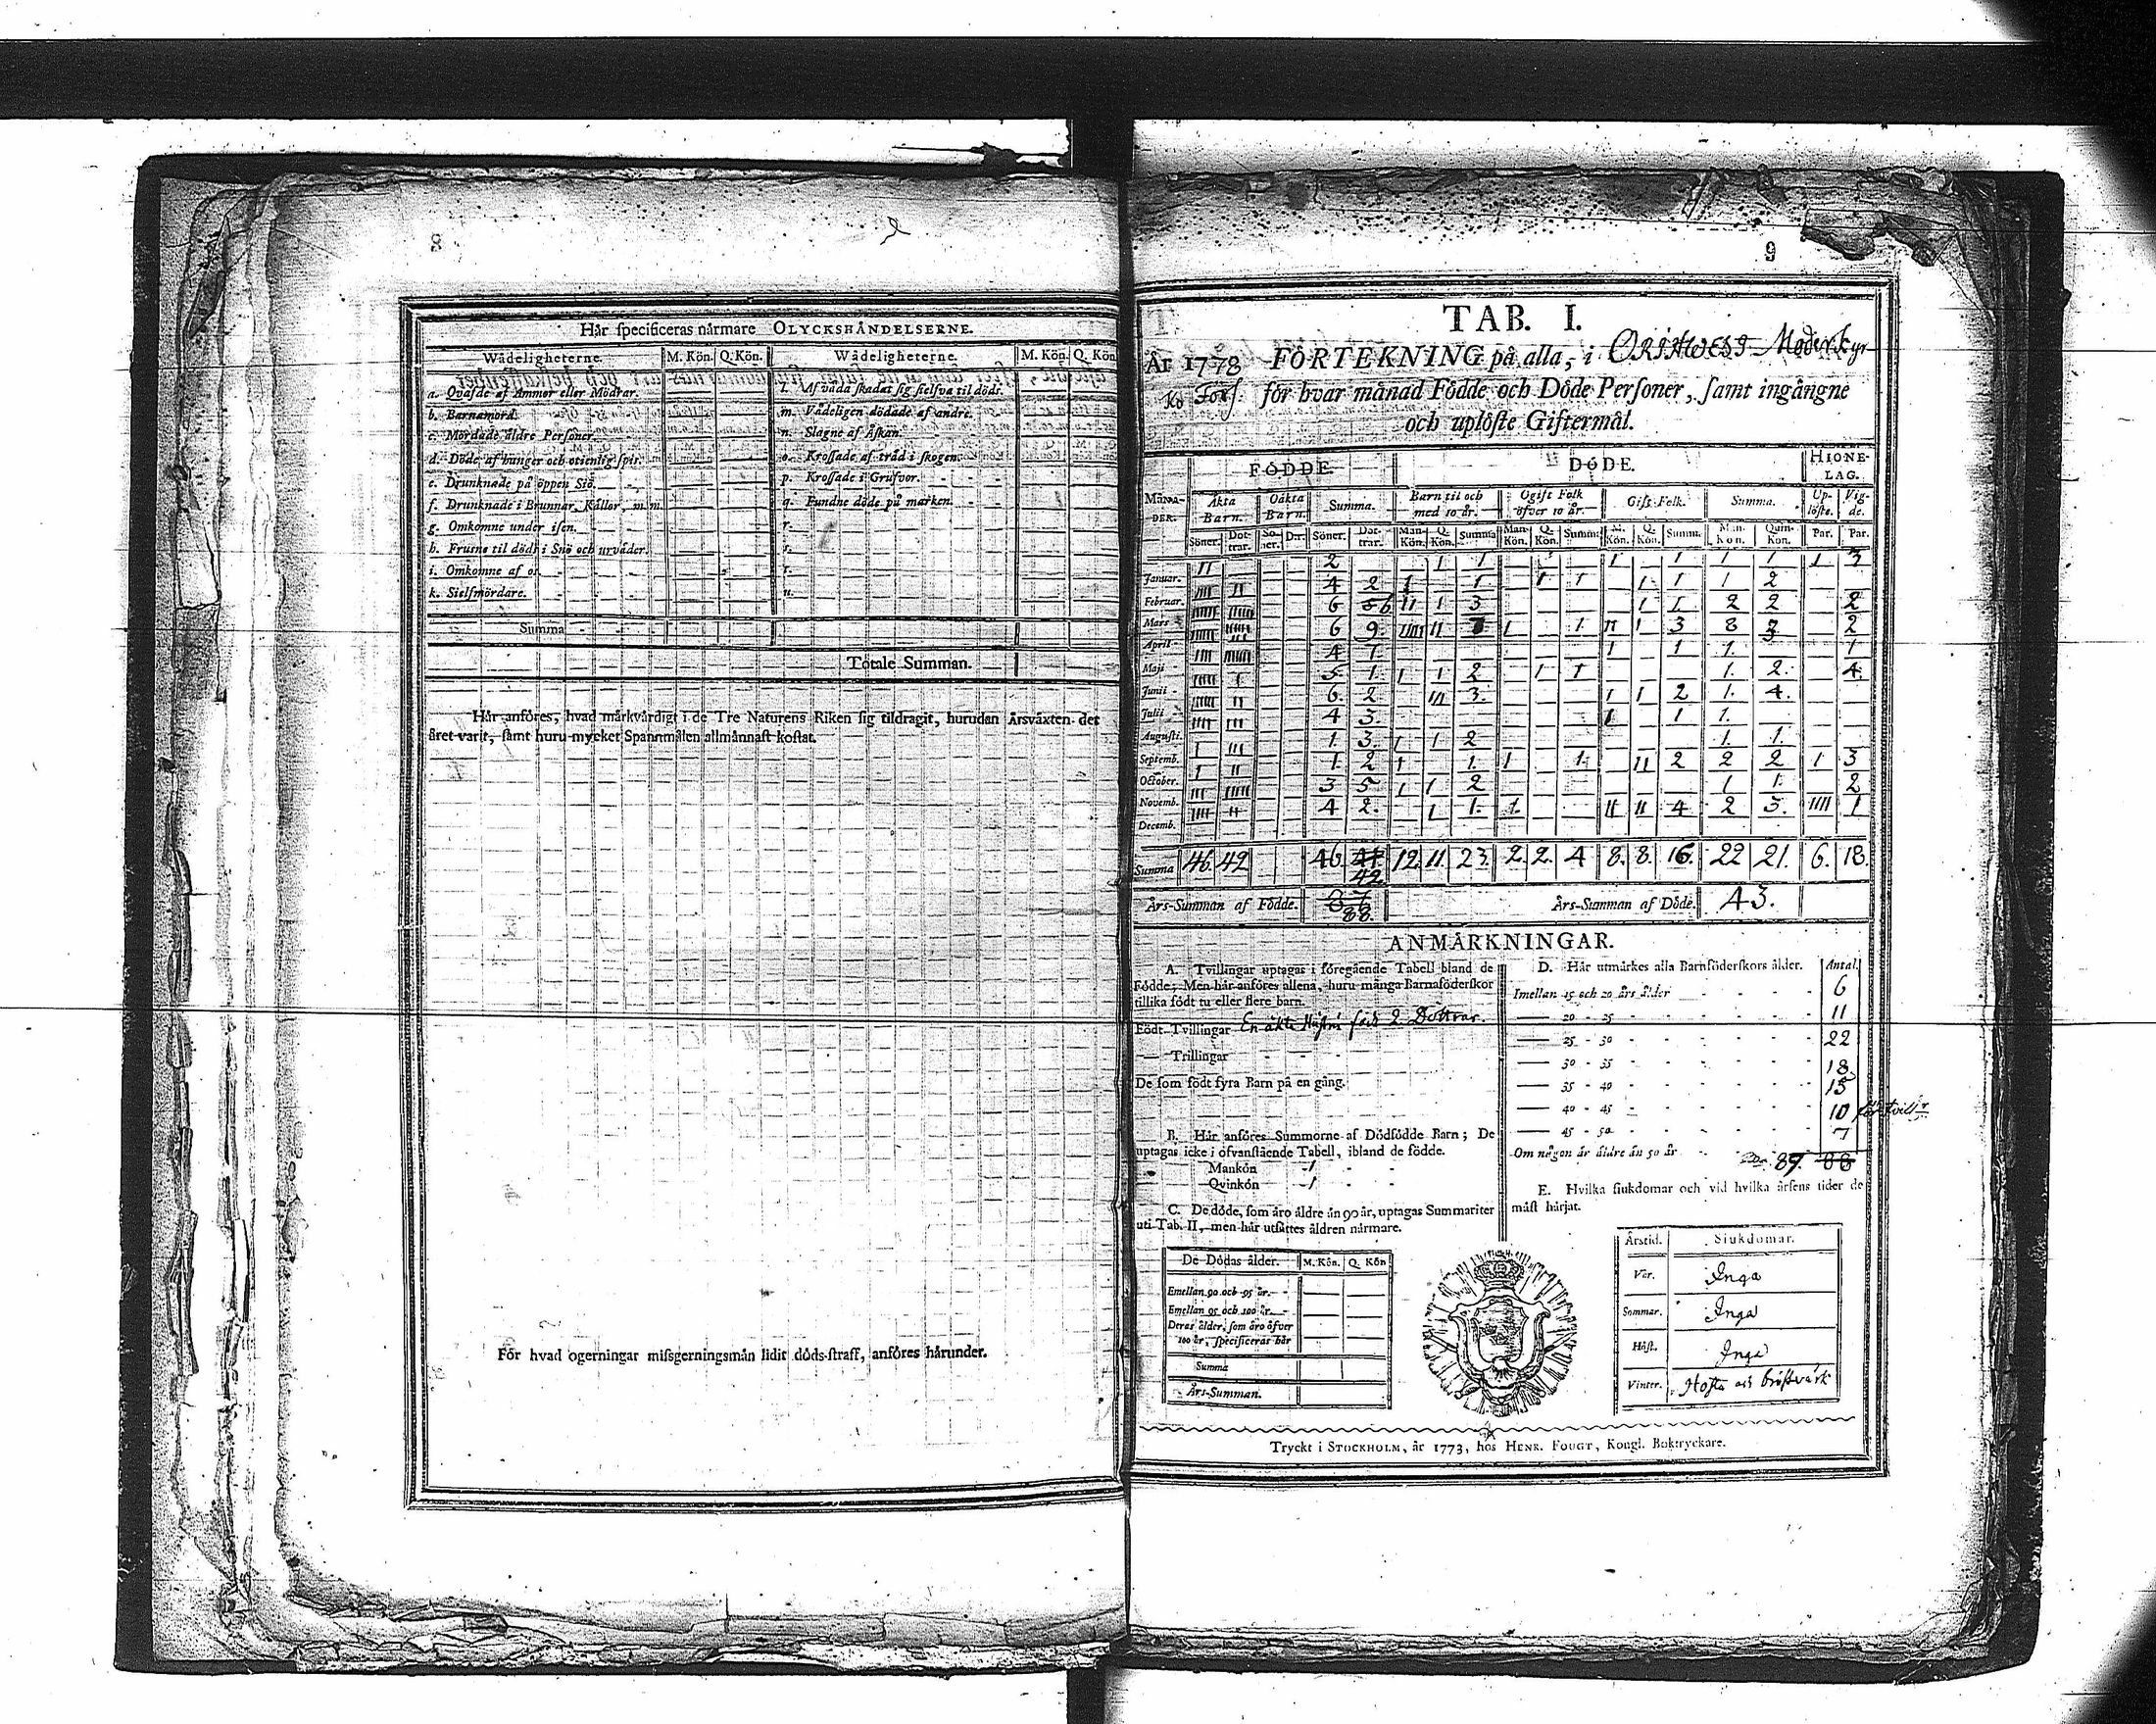 8
Här specificeras närmare OLYCKSHÄNDELSERNE.
Wådeligheterne. M. Kön. Q. Kön. Wådeligheterne. M. Kön. Q. Kön
a. Qvafde af Ammor eller Mödrar. l. Af våda skadat sig sielfva til döds.
b. Barnamord. m. Vådeligen dödade af andre.
c. Mördade äldre Personer. n. Slagne af Åskan.
d. Döde af hunger och otienlig spis. o. Krossade af träd i skogen.
e. Drunknade på öppen Siö. p. Krossade i Grufvor.
f. Drunknade i Brunnar, Källor, m. m. q. Fundne döde på marken.
g. Omkomne under isen. r.
h. Frusne til döds i Snö och urväder. s.
i. Omkomne af os. t.
k. Sielfmördare. u.
Summa
Totale Summan.
Här anföres, hvad märkvärdigt i de Tre Naturens Riken sig tildragit, hurudan Årsväxten det
året varit, samt huru mycket Spannmålen allmännast kostat.
För hvad ogerningar missgerningsmän lidit döds-straff, anföres härunder.
9
TAB. I.
År 1778 FÖRTEKNING på alla, i ORIHWESI Moderkyr
Ko Förs. för hvar månad Födde och Döde Personer, samt ingångne
och uplöste Giftermål.
FÖDDE. DÖDE. HIONELAG.
MÅNADER. Äkta Barn. Oäkta Barn. Summa. Barn til och med 10 år. Ogift Folk öfver 10 år. Gift Folk. Summa. Uplöste. Vigde.
Söner. Dottrar. Söner. D:r. Söner. Dottrar. Mankön. Q. Kön. Summa Mankön. Q. Kön. Summ: M. Kön. Q. Kön. Summ. Mankön. Quinkon. Par. Par.
Januar. II 2 1 1 1 1 1 1 1 3
Februar. IIII II 4 2 1 1 1 1 1 1 1 2
Mars 6 6 II 1 3 1 1 2 2 2
April 6 9. IIIII II 1 1 II 1 3 8 3 2
Maji IIII IIIIIII 4 7 1 1 1. 1
Junii IIIII I 5 1. 1 1 2 1 1 1. 2. 4
Julii IIIIII II 6 2 III 3. 1 1 2 1. 4.
Augusti. IIII III 4 3. 1 1 1.
Septemb. I III 1. 3. 1 1 2 1. 1.
October. I II 1. 2 1 1. 1 1. II 2 2 2 1 3
Novemb. III IIIII 3 5 1 1 2 1 1. 2
Decemb. IIII II 4 2. 1 1. 1. II II 4 2 3. IIII 1
Summa 46. 42 46 41 12. 11. 23. 2. 2. 4 8. 8. 16. 22 21. 6. 18.
42
Års-Summan af Födde. 87 Års-Summan af Döde. 43.
88.
ANMÄRKNINGAR.
A. Tvillingar uptagas i föregående Tabell bland de
Födde; Men här anföres allena, huru många Barnaföderskor
tillika födt tu eller flere barn.
Födt Tvillingar En äkta Hustru född 2 Döttrar.
Trillingar
De som födt fyra Barn på en gång.
B. Här anföres Summorne af Dödfödde Barn; De
uptagas icke i ofvanstående Tabell, ibland de födde.
Mankön 1
Qvinkön 1
C. De döde, som äro äldre än 90 år, uptagas Summariter
uti Tab. II, men här utsättes åldren närmare.
De Dödas ålder. M. Kön. Q. Kön
Emellan 90 och 95 år.
Emellan 95 och 100 år.
Deras ålder, som äro öfver
100 år, specificeras här
Summa
Års-Summan.
D. Här utmärkes alla Barnföderskors ålder. Antal.
Imellan 15 och 20 års ålder 6
20 - 25 11
25 - 30 22
30 - 35 18
35 - 40 15
40 - 45 10
45 - 50 7
Om någon är äldre än 50 år 89. 88
E. Hvilka siukdomar och vid hvilka årsens tider de
mäst härjat.
Årstid. Siukdomar.
Vår. Inga
Sommar. Inga
Höst. Inga
Vinter. Hosta och bröstvärk
Tryckt i STOCKHOLM, år 1773, hos HENR. FOUGT, Kongl. Boktryckare.